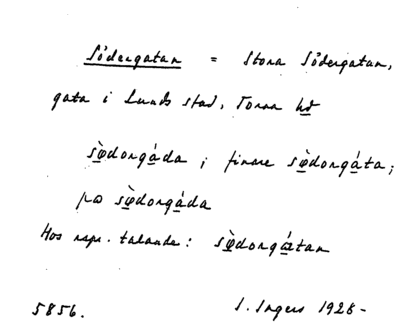 Södergatan = Stora Södergatan,
gata i Lunds stad, Torna hd
sø̀dorgáda; finare sø̀dorgáta;
på sø̀dorgáda
Hos repr. talande: sø̀dorgǽtan
5856. I. Ingers 1928-